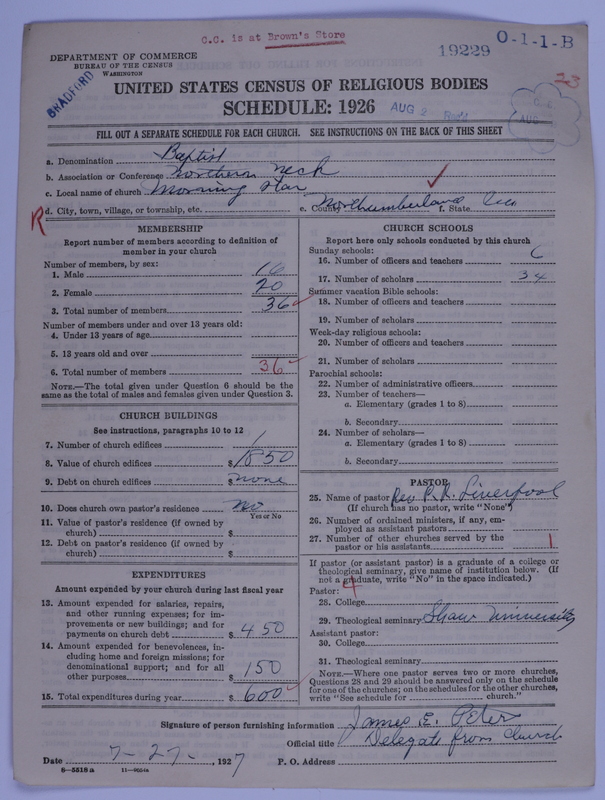 C.C. is at Brown's Store
19229 O-1-1-B
DEPARTMENT OF COMMERCE
BUREAU OF THE CENSUS
WASHINGTON
BRADFORD
23
UNITED STATES CENSUS OF RELIGIOUS BODIES
SCHEDULE: 1926
AUG 2 Rec'd
AUG
FILL OUT A SEPARATE SCHEDULE FOR EACH CHURCH. SEE INSTRUCTIONS ON THE BACK OF THIS SHEET
a. Denomination Baptist
b. Association or Conference Northern Neck
c. Local name of church Morning Star
R d. City, town, village, or township, etc. e. County Northumberland f. State
MEMBERSHIP
Report number of members according to definition of
member in your church
Number of members, by sex:
1. Male 16
2. Female 20
3. Total number of members 36
Number of members under and over 13 years old:
4. Under 13 years of age
5. 13 years old and over
6. Total number of members 36
NOTE.—The total given under Question 6 should be
same as the total of males and females given under Question 3.
CHURCH BUILDINGS
See instructions, paragraphs 10 to 12
7. Number of church edifices 1
8. Value of church edifices $ 1850
9. Debt on church edifices $ none
10. Does church own pastor's residence? no
Yes or No
11. Value of pastor's residence (if owned by
church) $
12. Debt on pastor's residence (if owned by
church) $
EXPENDITURES
Amount expended by your church during last fiscal year
13. Amount expended for salaries, repairs,
and other running expenses; for im-
provements or new buildings; and for
payments on church debt $ 450
14. Amount expended for benevolences, in-
cluding home and foreign missions; for
denominational support; and for all
other purposes $ 150
15. Total expenditures during year $ 600
CHURCH SCHOOLS
Report here only schools conducted by this church
Sunday schools:
16. Number of officers and teachers 6
17. Number of scholars 34
Summer vacation Bible schools:
18. Number of officers and teachers
19. Number of scholars
Week-day religious schools:
20. Number of officers and teachers
21. Number of scholars
Parochial schools:
22. Number of administrative officers
23. Number of teachers—
a. Elementary (grades 1 to 8)
b. Secondary
24. Number of scholars—
a. Elementary (grades 1 to 8)
b. Secondary
PASTOR
25. Name of pastor Rev. C. R. Liverpool
(If church has no pastor, write "None")
26. Number of ordained ministers, if any, em-
ployed as assistant pastors
27. Number of other churches served by the
pastor or his assistants 1
If pastor (or assistant pastor) is a graduate of a college or
theological seminary, give name of institution below. (If
not a graduate, write "No" in the space indicated.)
Pastor: 4
28. College
29. Theological seminary Shaw University
Assistant pastor:
30. College
31. Theological seminary
NOTE.—Where one pastor serves two or more churches,
Questions 28 and 29 should be answered only on the schedule
for one of the churches; on the schedules for the other churches,
write "See schedule for church."
Signature of person furnishing information James E. Peter
Official title Delegate from Church
Date 7-27-, 1927 P. O. Address
8-5518 a